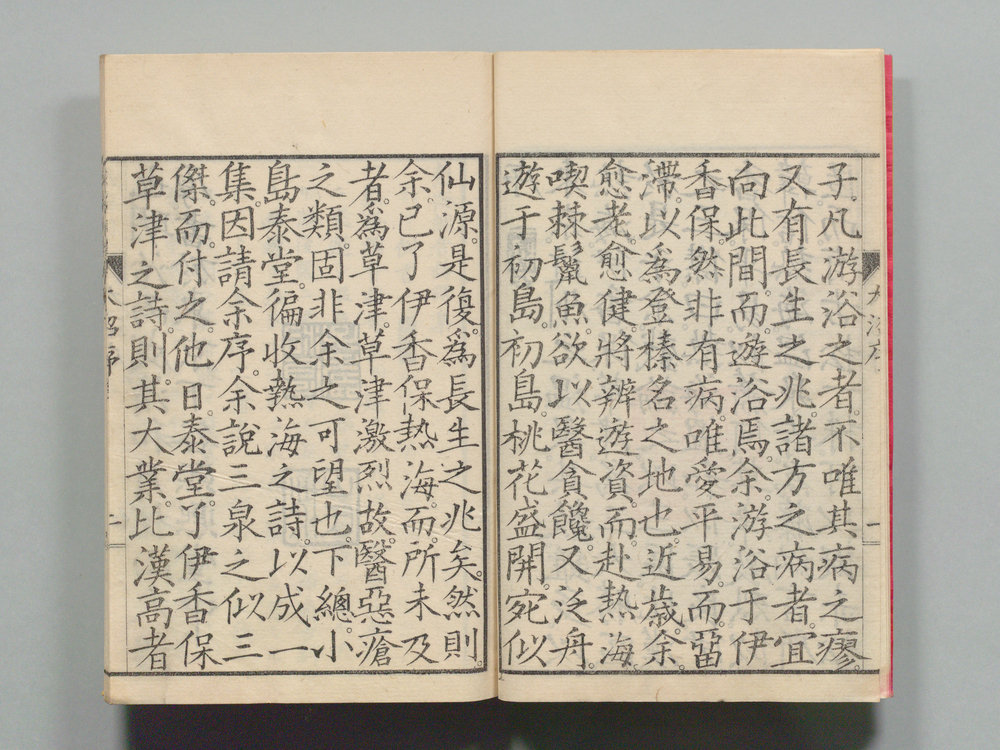 子。凡游浴之者。不唯其病之瘳。
又有長生之兆。諸方之病者。宜
向此間而遊浴焉。余游浴于伊
香保。然非有病。唯愛平易。而畱
滯。以為登榛名之地也。近歲。余
愈老。愈健。將辨遊資。而赴熱海。
喫棘鬣魚。欲以醫貪饞。又泛舟。
遊于初島。初島。桃花盛開。宛似
仙源。是復為長生之兆矣。然則。
余。已了伊香保熱海。而所未及
者。為草津。草津激烈。故醫惡瘡
之類。固非余之可望也。下總。小
島泰堂。徧收熱海之詩。以成一
集。因請余序。余說三泉之似三
傑。而付之。他日。泰堂。了伊香保
草津之詩。則其大業。比漢高者